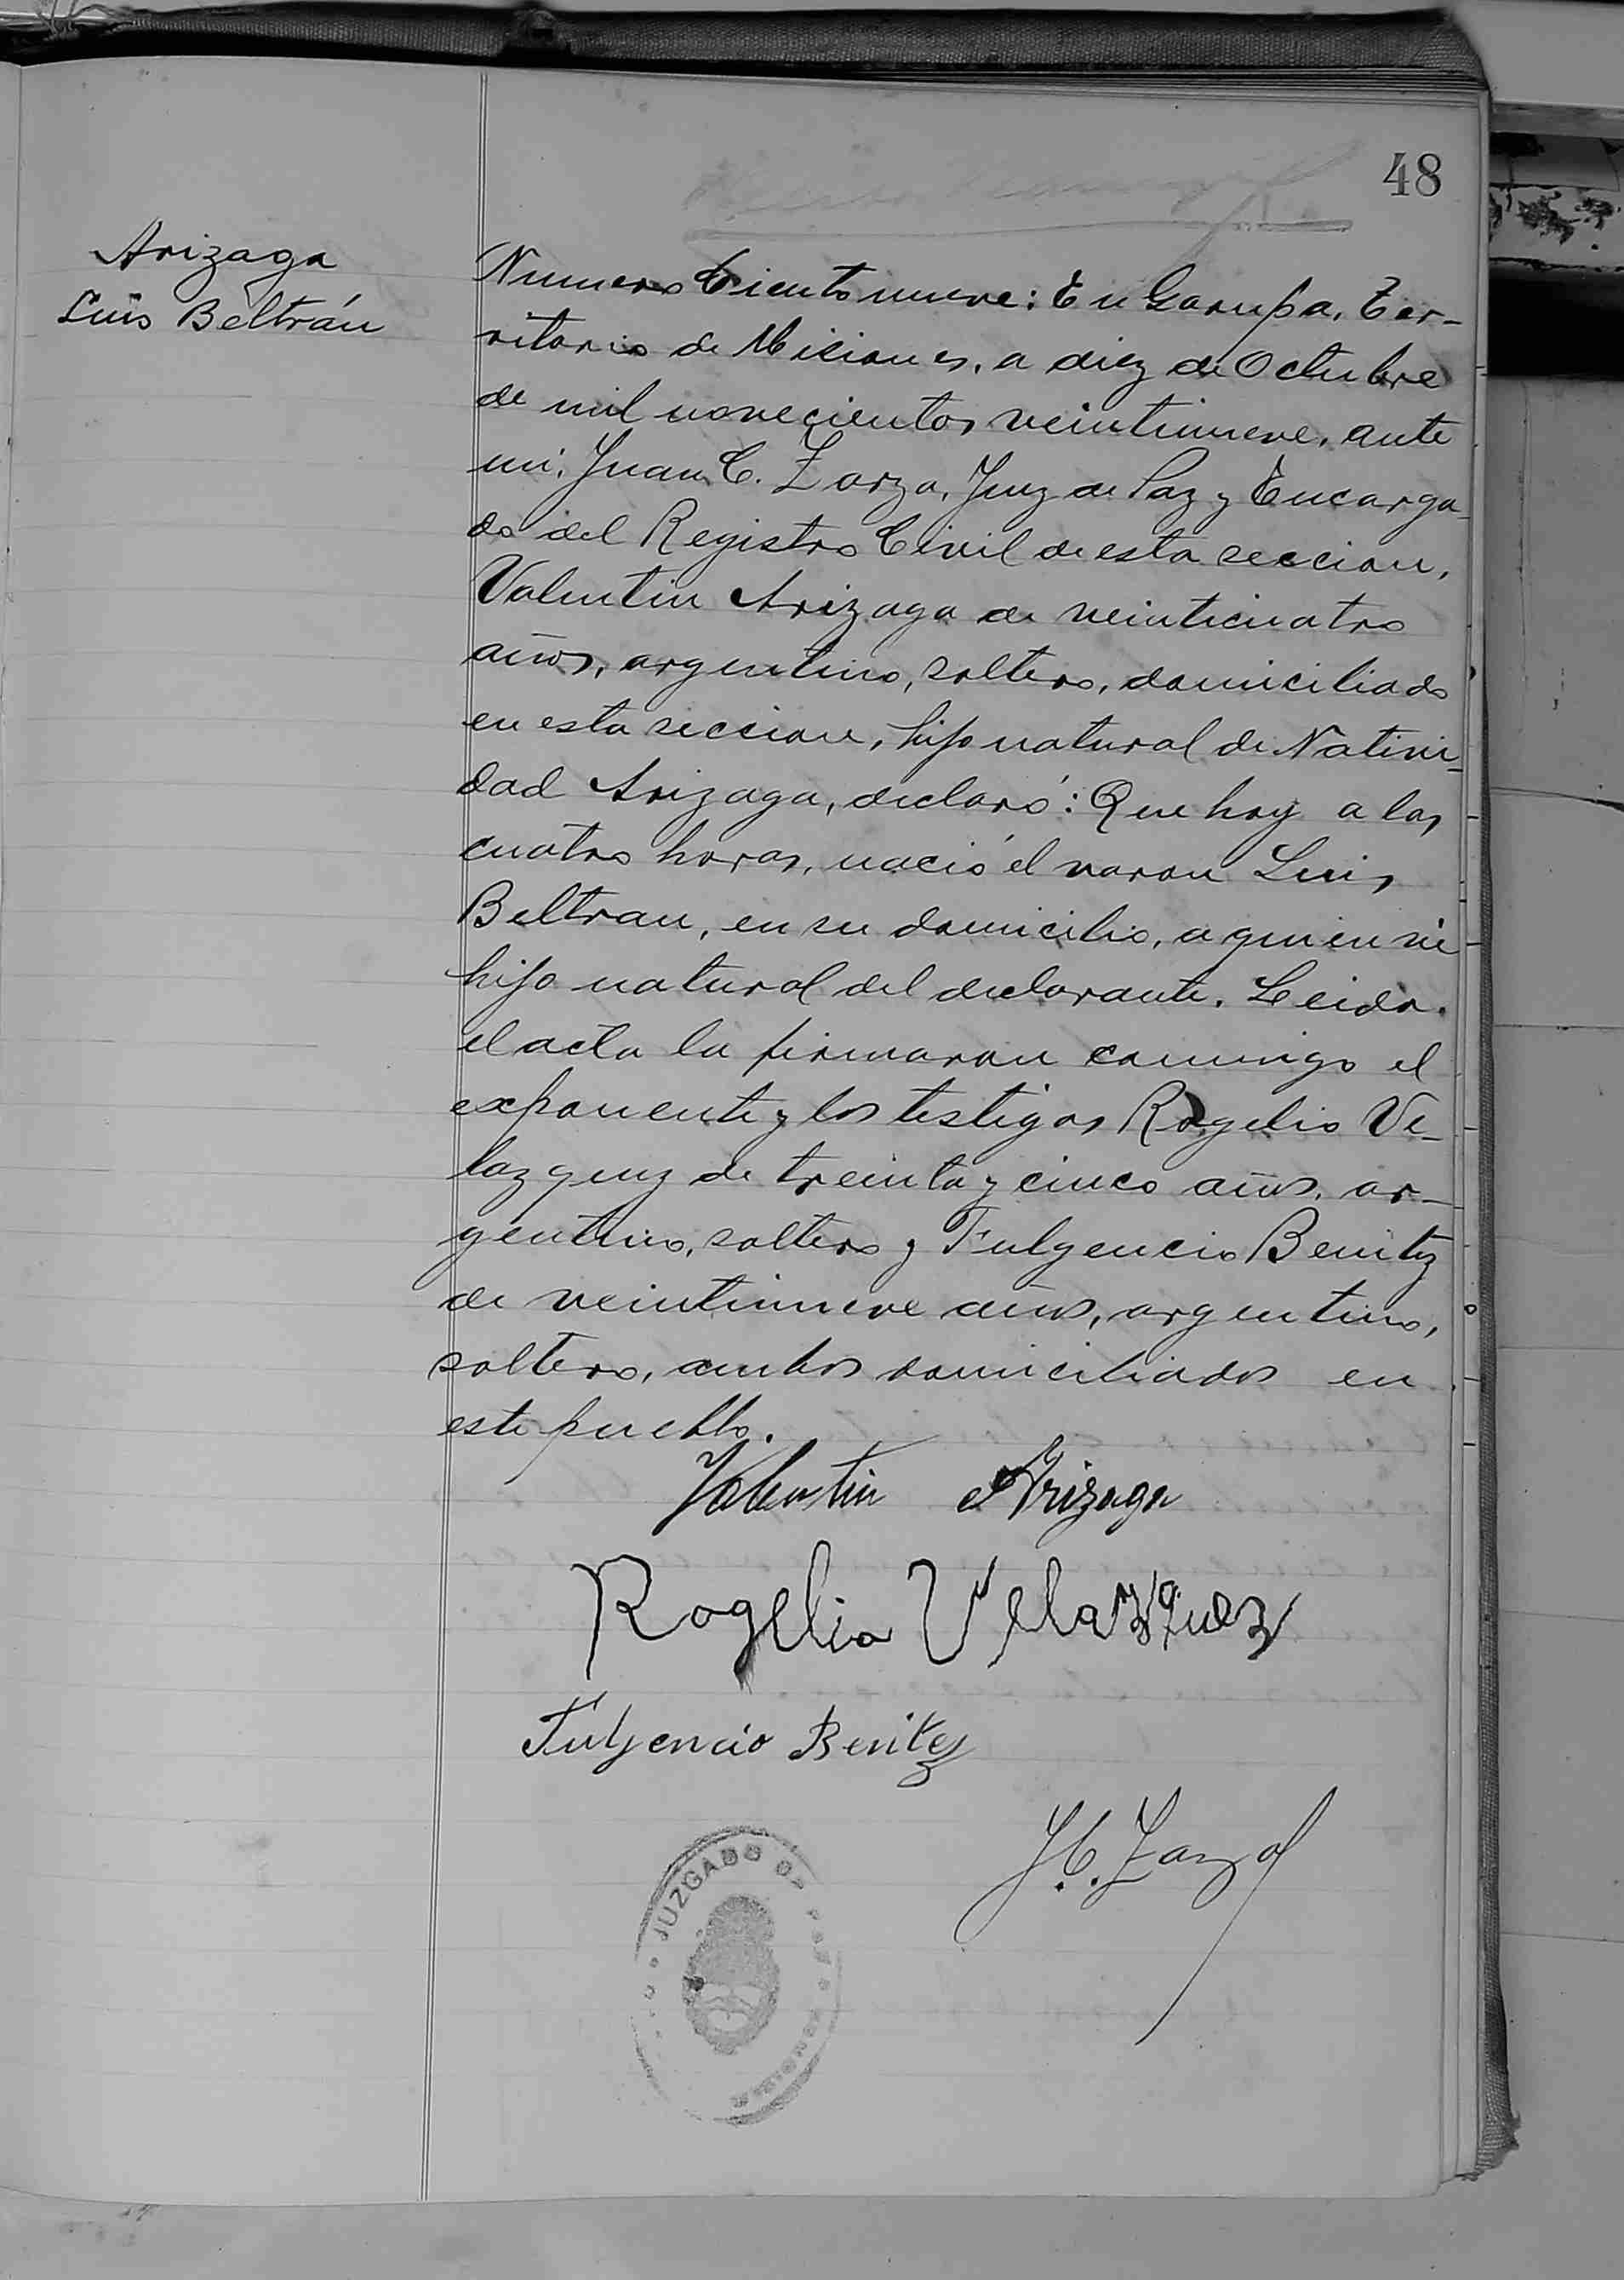 48
Arizaga
Luis Beltrán
Numero Ciento nueve: En Garupa, Ter-
ritorio de Misiones, a diez de Octubre
de mil novecientos veintinueve, ante
mi, Juan C. Zarza, Juez de Paz y Encarga-
do del Registro Civil de esta seccion,
Valentin Arizaga de veinticuatro
años, argentino, soltero, domiciliado
en esta seccion, hijo natural de Nativi-
dad Arizaga, declaró: Que hoy a las
cuatro horas, nació el varon Luis
Beltran, en su domicilio, a quien vi
hijo natural del declarante. Leida
el acta la firmaron conmigo el
exponente y los testigos Rogelio Ve-
lazquez de treinta y cinco años, ar-
gentino, soltero y Fulgencio Benitez
de veintinueve años, argentino,
soltero, ambos domiciliados en
este pueblo.
Valentin Arizaga
Rogelio Velazquez
Fulgencio Benitez
J. C. Zarza
JUZGADO DE